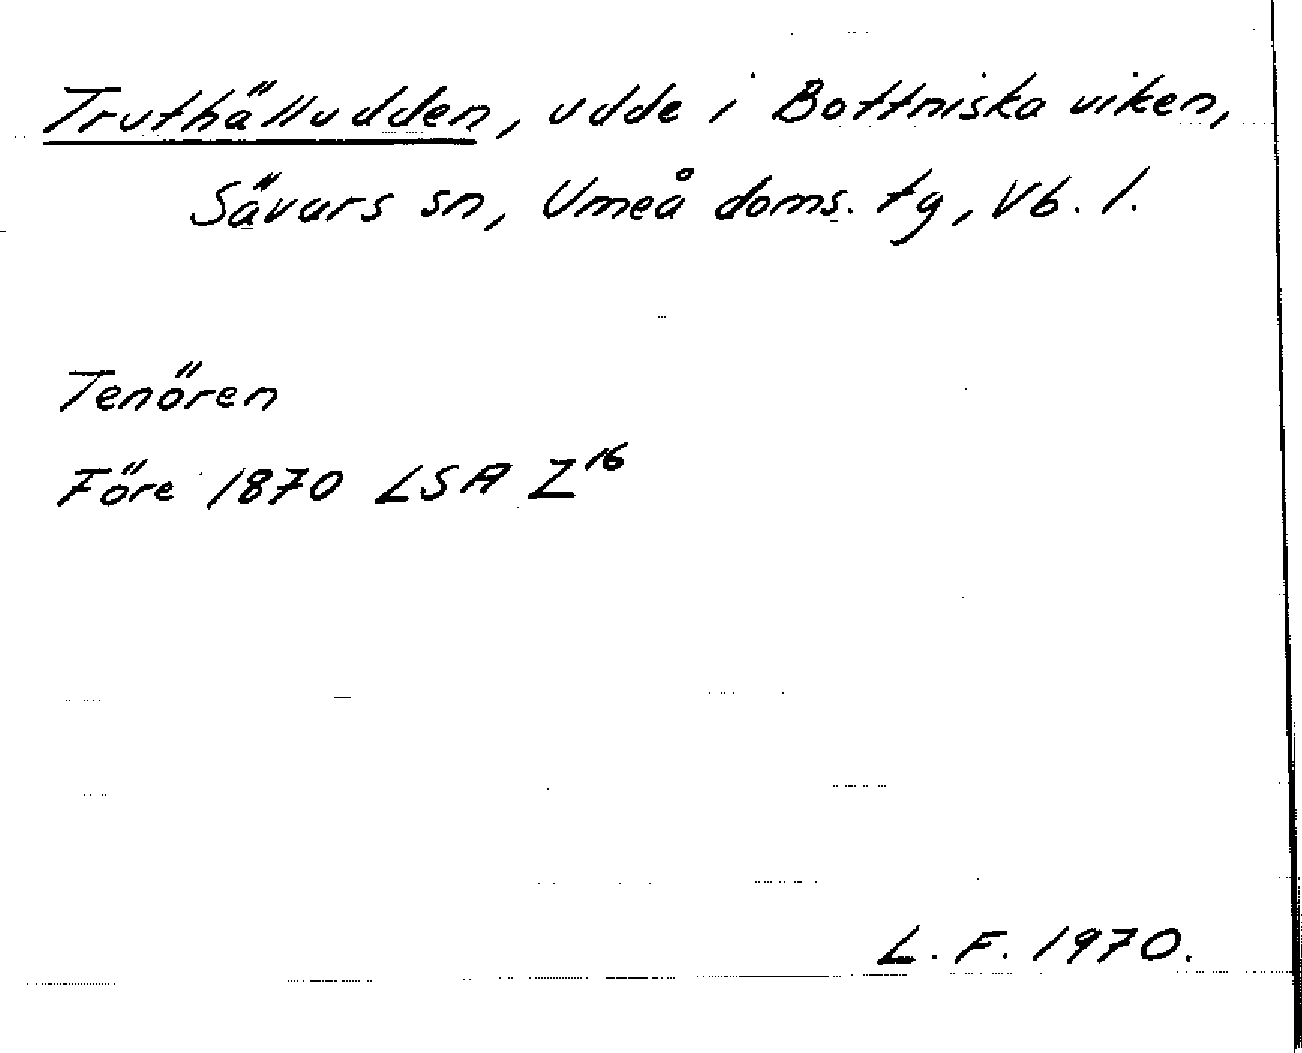 Truthälludden, udde i Bottniska viken,
Sävars sn, Umeå doms. tg, Vb. l.
Tenören
Före 1870 LSA Z16
L. F. 1970.